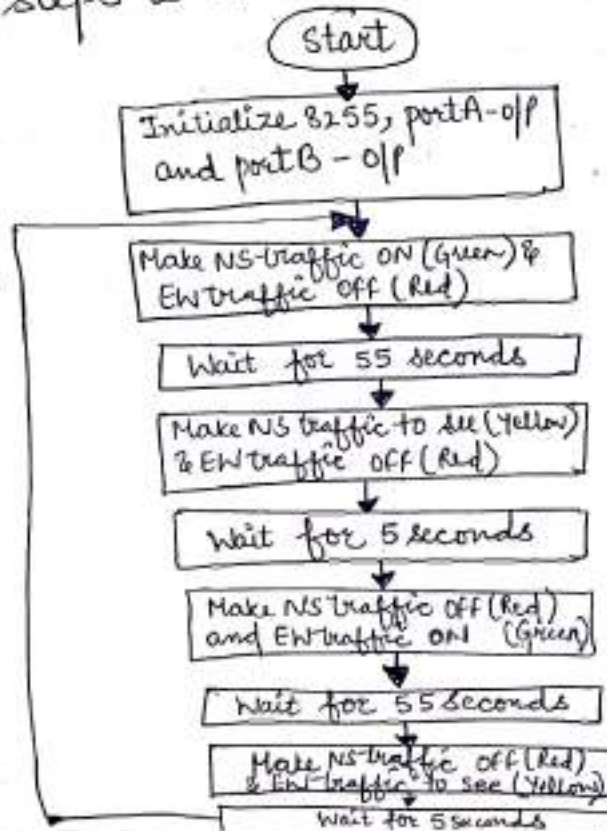 Start
Initialize 8255, portA-o/p
and portB - o/p
Make NS-traffic ON (Green) &
EW traffic OFF (Red)
Wait for 55 seconds
Make NS traffic to see (Yellow)
& EW traffic OFF (Red)
Wait for 5 seconds
Make NS traffic OFF (Red)
and EW traffic ON (Green)
Wait for 55 seconds
Make NS-traffic OFF (Red)
& EW-traffic to see (Yellow)
Wait for 5 seconds